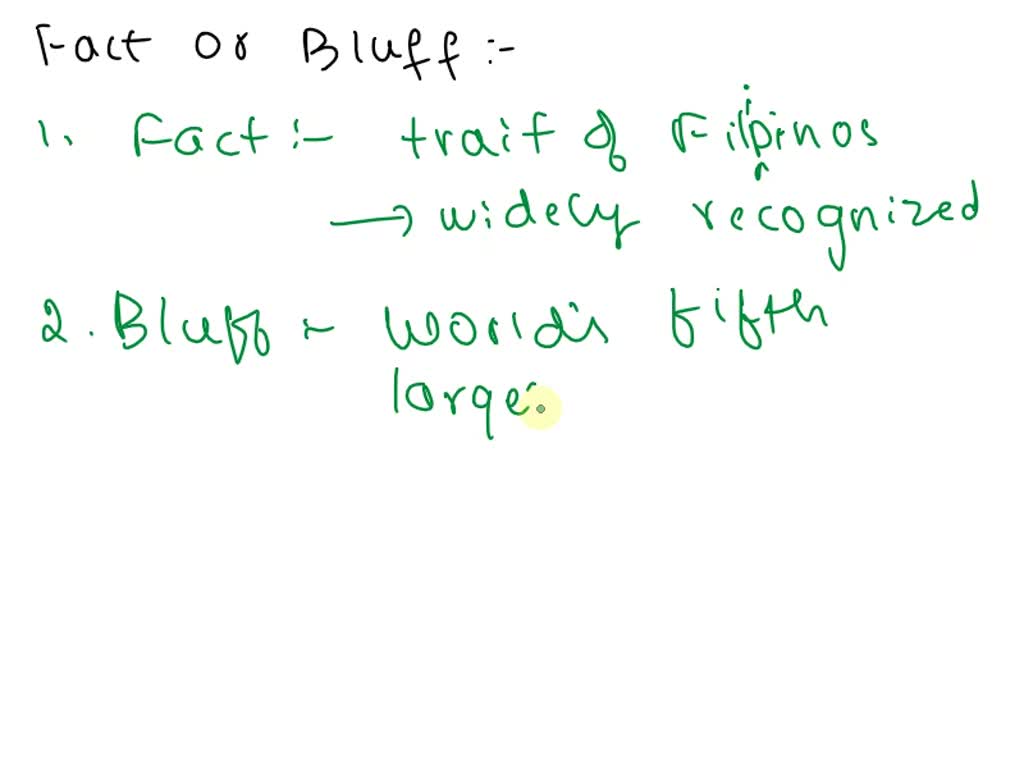 Fact or Bluff :-
1. Fact :- trait of Filipinos
→ widely recognized
2. Bluff :- World's fifth
large